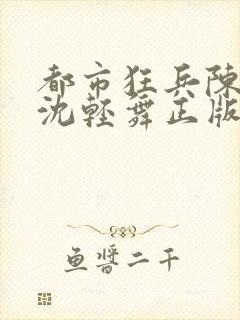 都市狂兵陳
沈輕舞正版
鱼醬二千